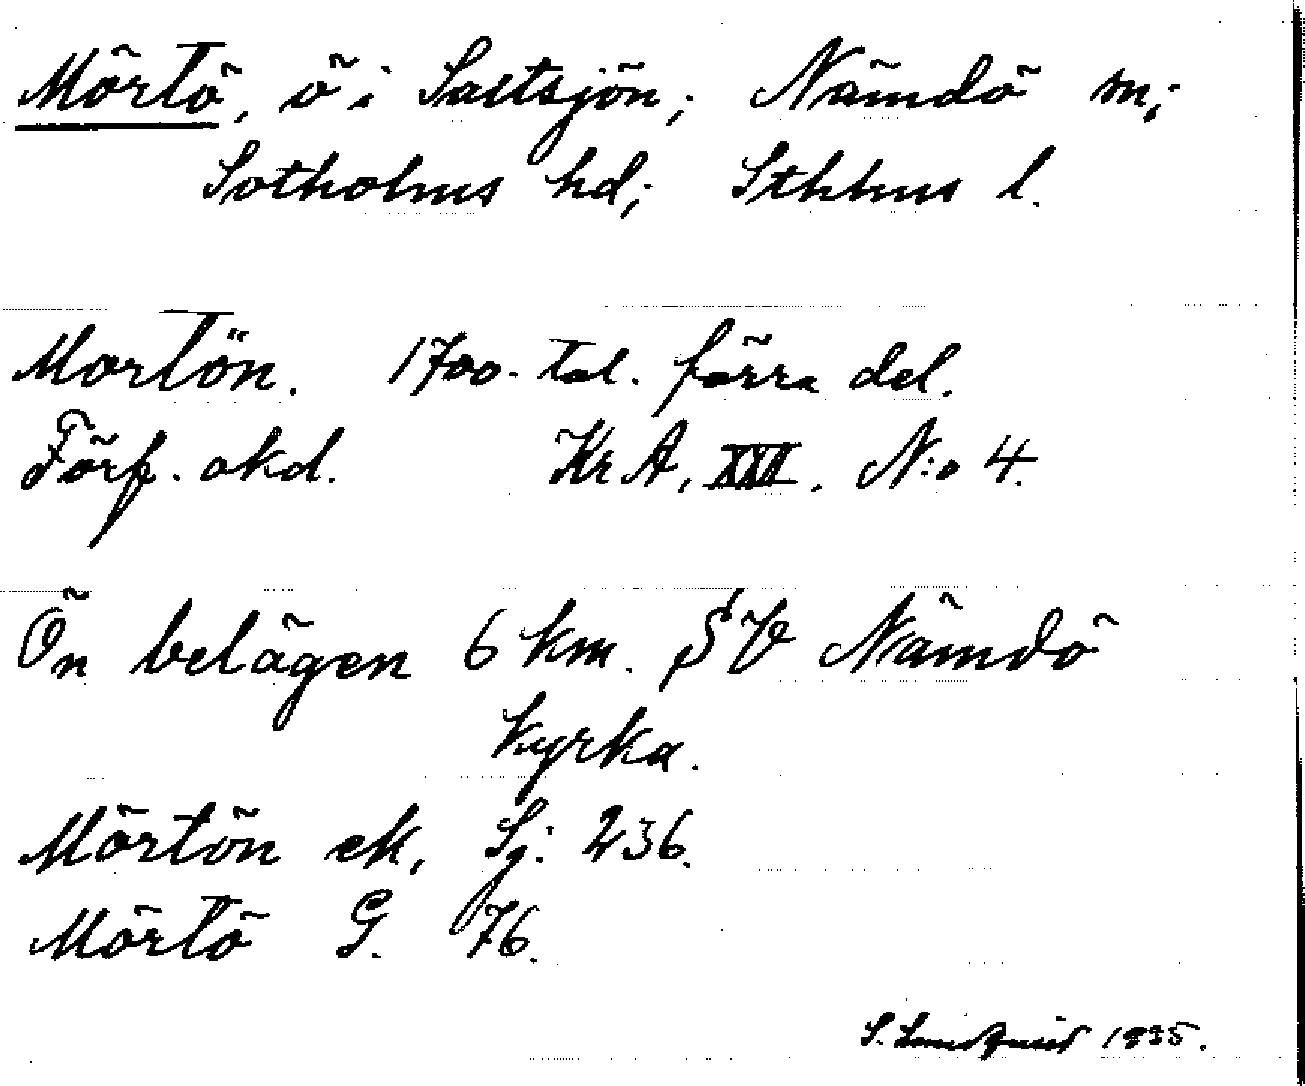 Mörtö, ö i Saltsjön; Nämdö m;
Sotholms hd; Sthlms l.
Mortön. 1700-tal. förra del.
Förf. okd. Kr A, XXII. N:o 4.
Ön belägen 6 km. SV Nämdö
kyrka.
Mörtön ek, Sj: 236.
Mörtö G. 76.
S. Lundquist 1935.